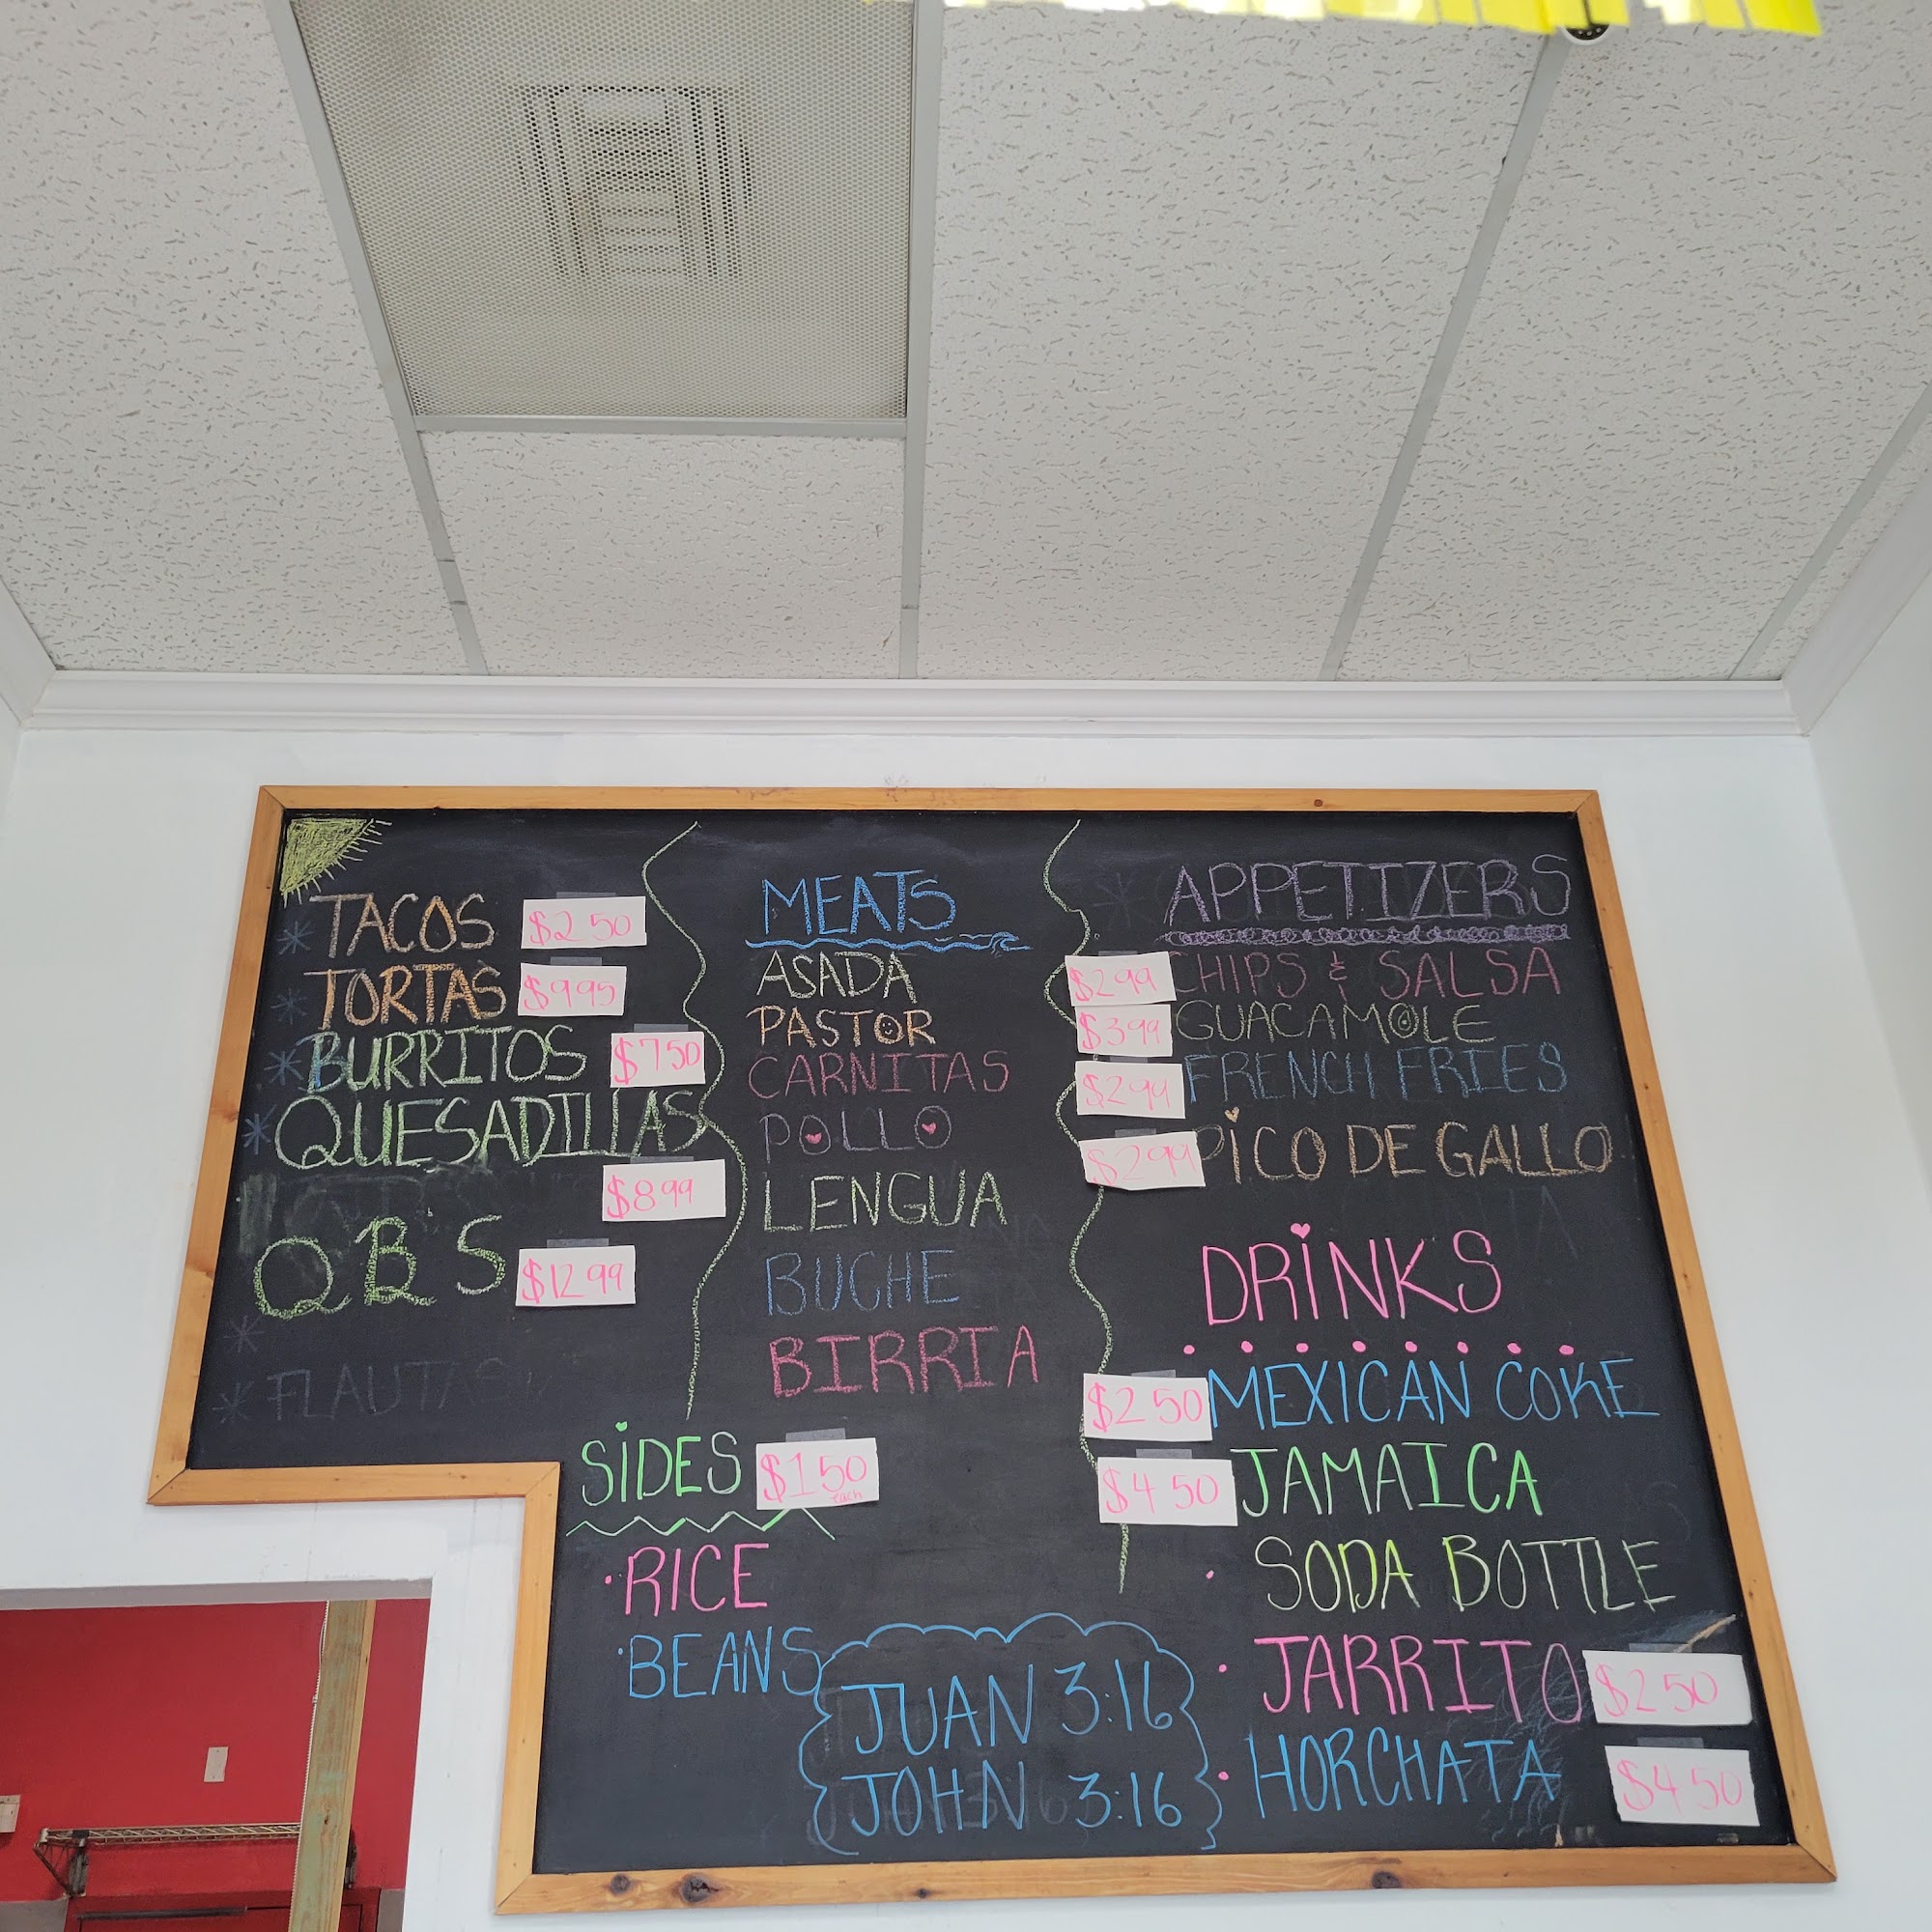 TACOS $2 50
TORTAS $9 95
BURRITOS $7 50
QUESADILLAS
$8 99
QBS $12 99
FLAUTAS
MEATS
ASADA
PASTOR
CARNITAS
POLLO
LENGUA
BUCHE
BIRRIA
SIDES $1 50
each
RICE
BEANS
JUAN 3:16
JOHN 3:16
APPETIZERS
$2 99 CHIPS & SALSA
$3 99 GUACAMOLE
$2 99 FRENCH FRIES
$2 99 PICO DE GALLO
DRINKS
$2 50 MEXICAN COKE
$4 50 JAMAICA
SODA BOTTLE
JARRITO $2 50
HORCHATA $4 50